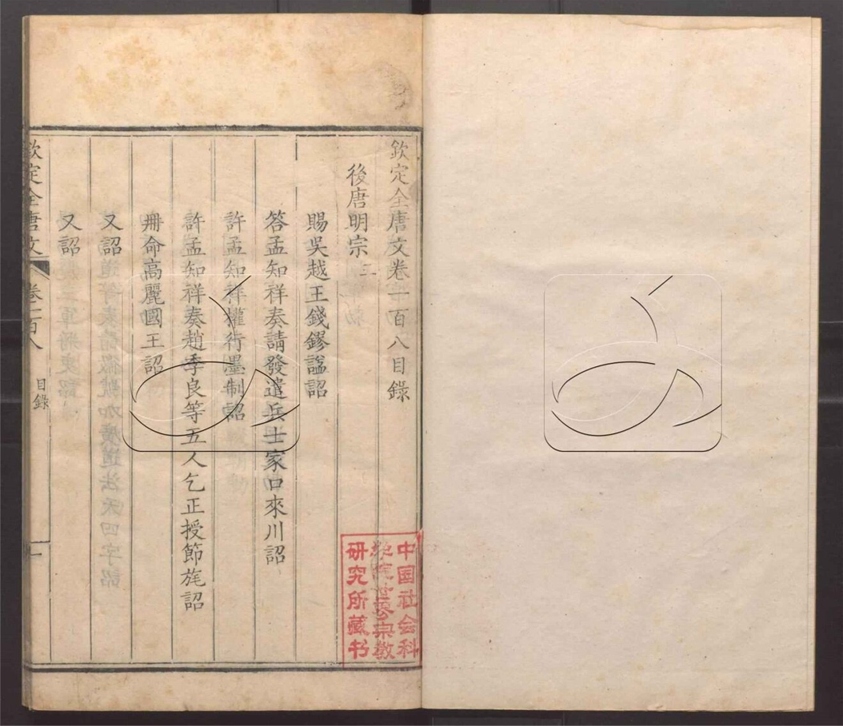 欽定全唐文卷一百八目錄
後唐明宗三
賜吳越王錢鏐諡詔
答孟知祥奏請發遣兵士家口來川詔
許孟知祥權行墨制詔
許孟知祥奏趙季良等五人乞正授節旄詔
冊命高麗國王詔
又詔
又詔
欽定全唐文
卷一百八
目錄
一
中国社会科
学院世界宗教
研究所藏书